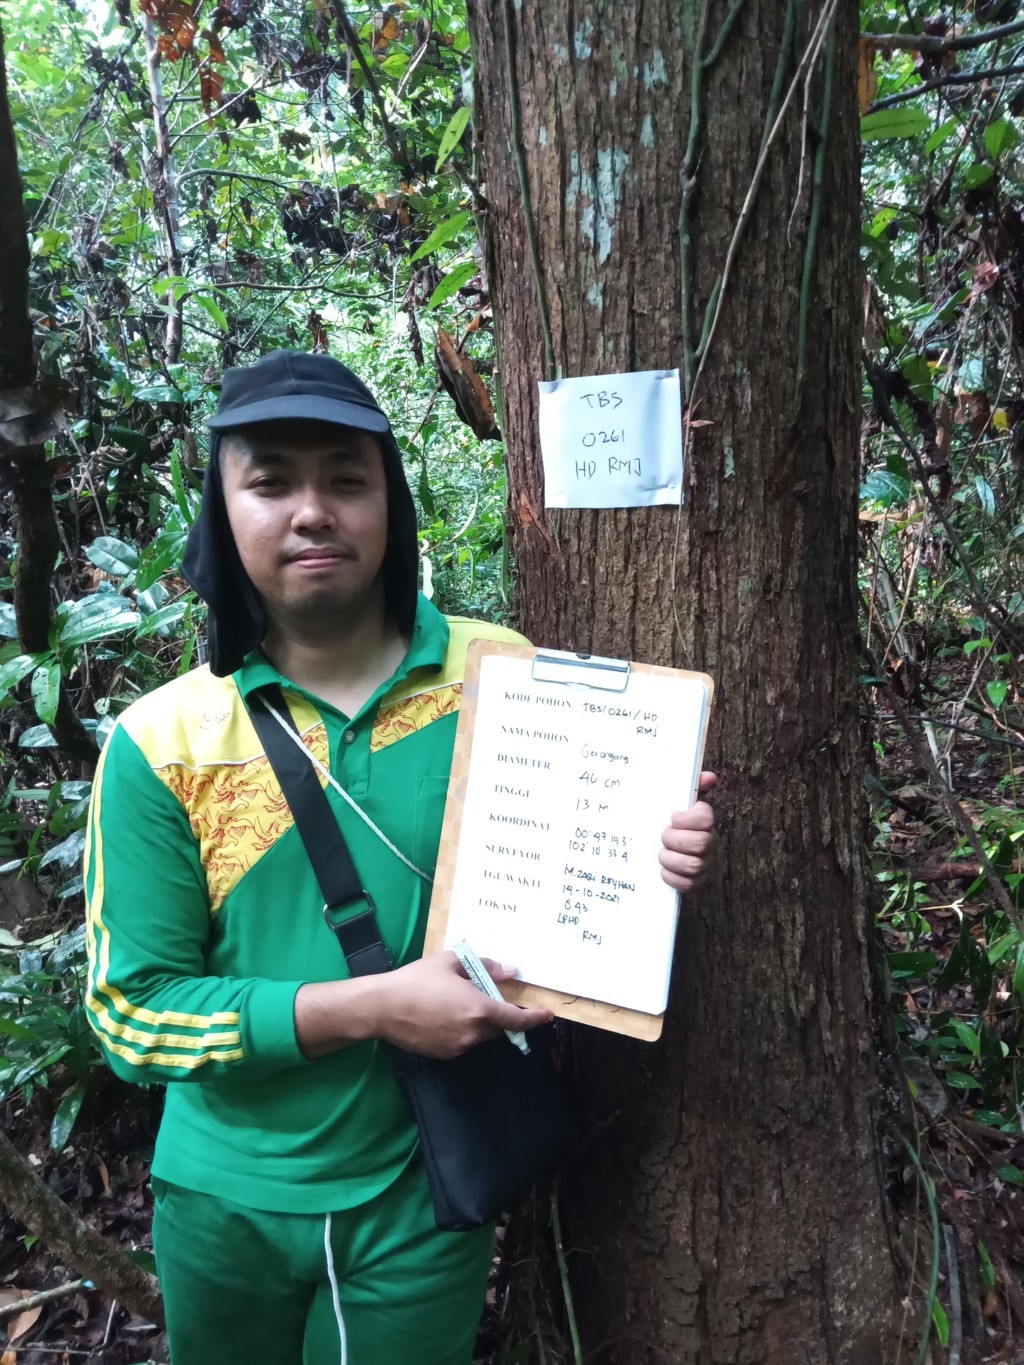 TBS
0261
HD RMJ
KODE POHON TBS/0261/HD
RMJ
NAMA POHON Gerongang
DIAMETER 46 cm
TINGGI 13 M
KOORDINAT 00° 47' 19.3"
102° 10' 33.4
SURVEYOR M. ZABI REYHAN
TGL/WAKTU 14-10-2021
8 43
LOKASI LPHD
RMJ